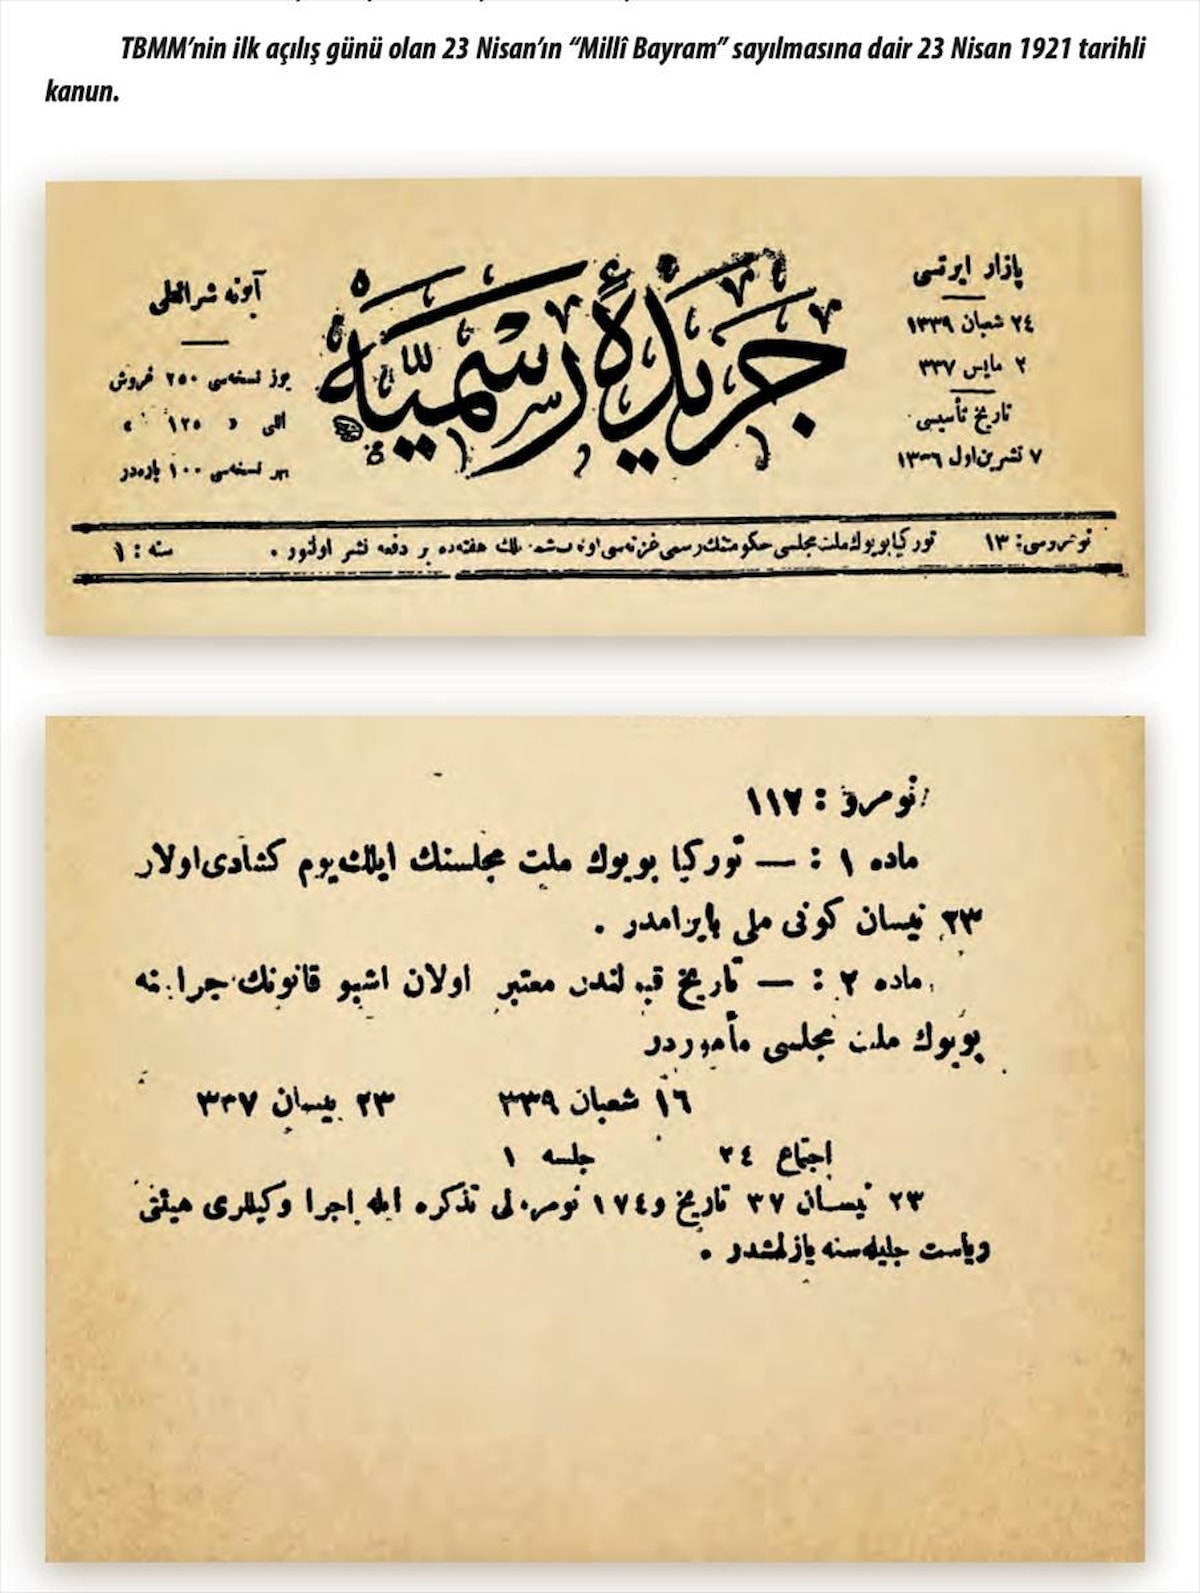 TBMM’nin ilk açılış günü olan 23 Nisan’ın “Millî Bayram” sayılmasına dair 23 Nisan 1921 tarihli
kanun.
پازار ايرتسی
٢٤ شعبان ١٣٣٩
٢ مايس ٣٣٧
تاريخ تأسيسی
٧ تشرين اول ١٣٣٦
جريدۀ رسميه
آبونه شرائطی
يوز نسخه‌سی ٢٥٠ غروش
اللی » ١٢٥ »
بهر نسخه‌سی ١٠٠ پاره‌در
نومروسی: ١٣
توركيا بويوك ملت مجلسی حكومتنك رسمی غزته‌سی هفته‌ده بر دفعه نشر اولنور .
سنه : ١
نومرو : ١١٢
ماده ١ : — توركيا بويوك ملت مجلسنك ايلك يوم كشادی اولان
٢٣ نيسان كونی ملی بايرامدر .
ماده ٢ : — تاريخ قبولندن معتبر اولان اشبو قانونك اجراسنه
بويوك ملت مجلسی مأموردر
١٦ شعبان ٣٣٩ ٢٣ نيسان ٣٣٧
اجتماع ٢٤ جلسه ١
٢٣ نيسان ٣٧ تاريخ و ١٧٤ نومرولی تذكره ايله اجرا وكيللری هيئتی
رياست جليله‌سنه يازلمشدر .